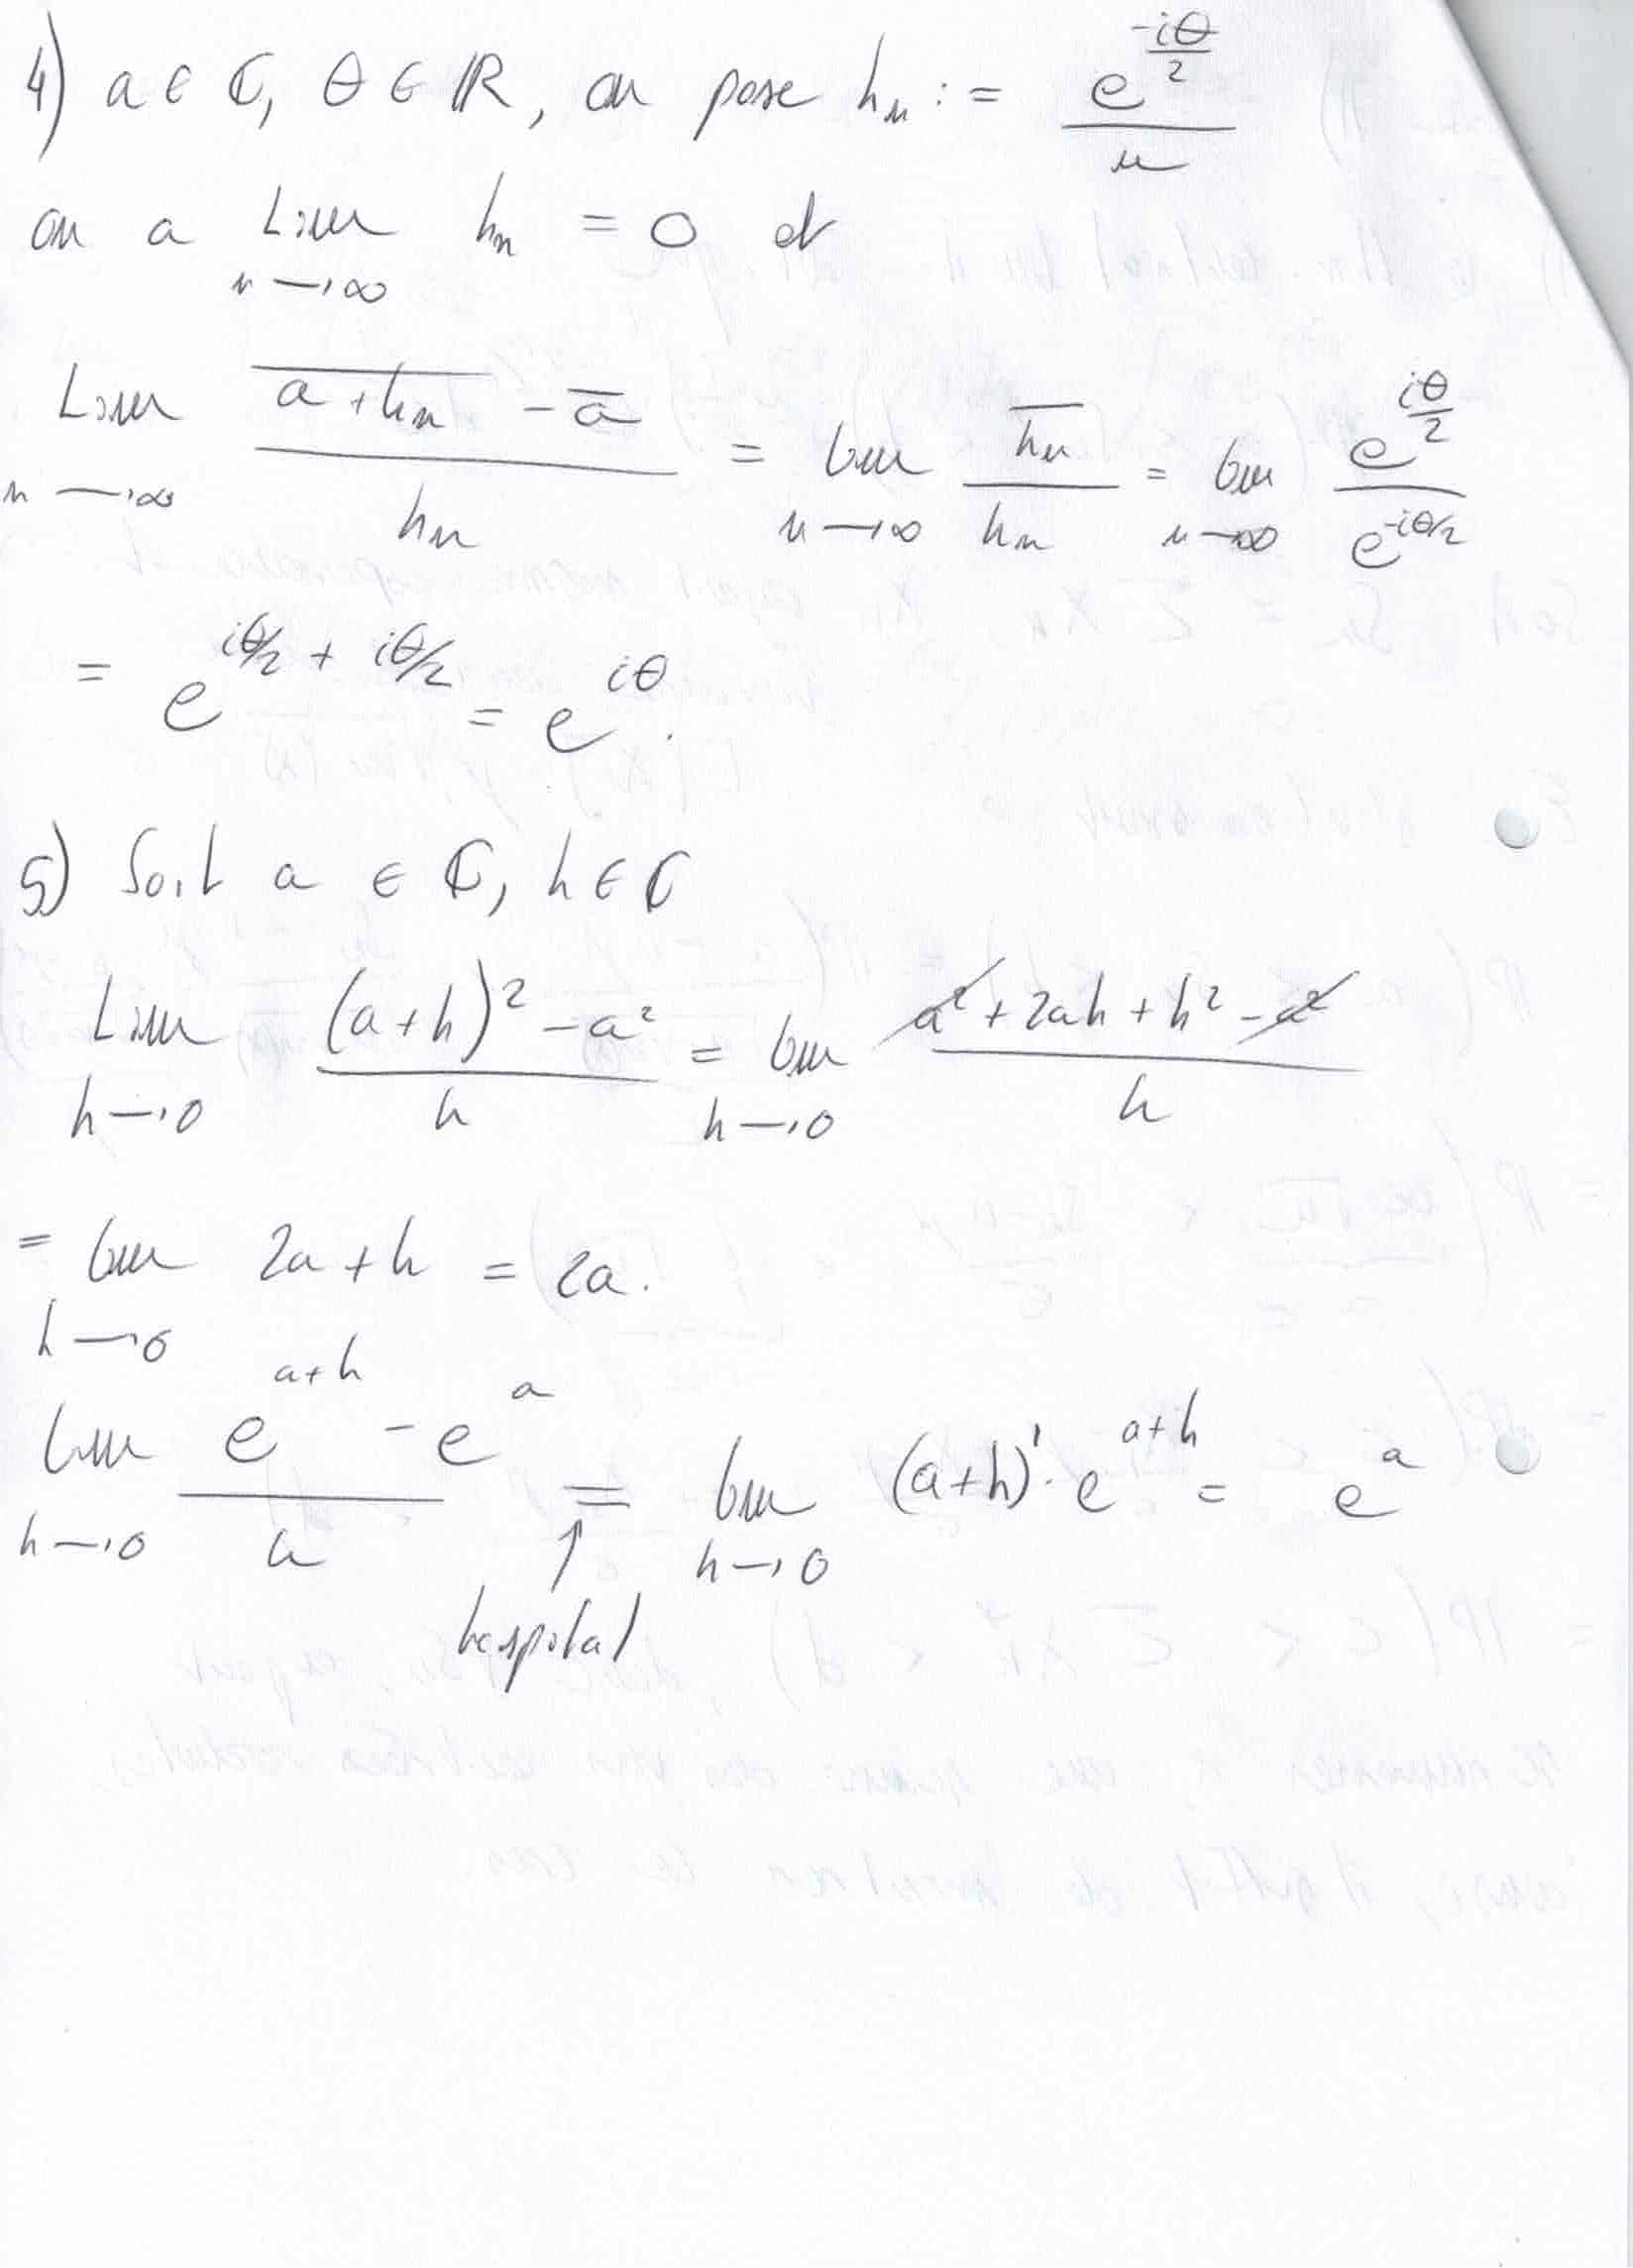 4) a ∈ ℂ, θ ∈ ℝ, on pose hₙ := e^(-iθ/2) / n
on a Lim_{n→∞} hₙ = 0 et
Lim_{n→∞} (\overline{a + hₙ} - \overline{a}) / hₙ = lim_{n→∞} \overline{hₙ} / hₙ = lim_{n→∞} e^(iθ/2) / e^(-iθ/2)
= e^(iθ/2 + iθ/2) = e^(iθ).
5) Soit a ∈ ℂ, h ∈ ℂ
Lim_{h→0} ((a+h)² - a²) / h = lim_{h→0} (a² + 2ah + h² - a²) / h
= lim_{h→0} 2a + h = 2a.
lim_{h→0} (e^(a+h) - e^a) / h = lim_{h→0} (a+h)' · e^(a+h) = e^a
↑
hospital